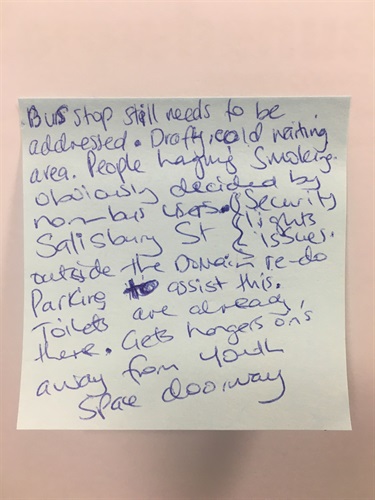 Bus stop still needs to be
addressed. Drafty, cold waiting
area. People hanging Smoking.
obviously decided by
non-bus users. { Security
Salisbury St { lights
issues.
outside the Domain re-do
Parking to assist this.
Toilets are already
there. Gets hangers ons
away from youth
Space doorway